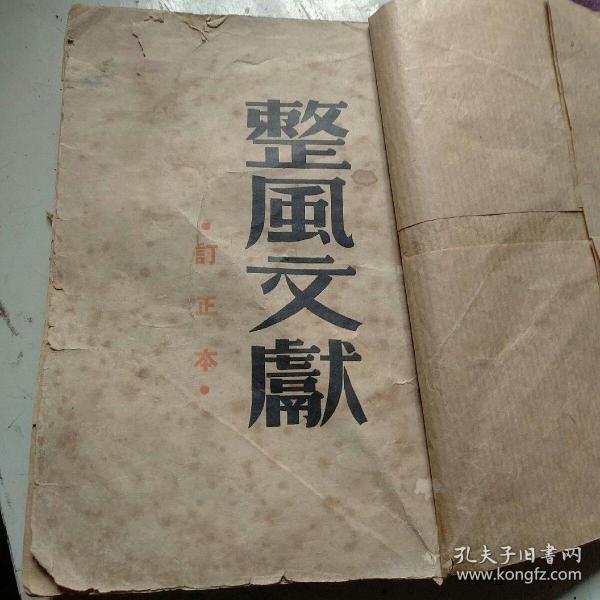 整風文獻
•訂正本•
孔夫子旧書网
www.kongfz.com